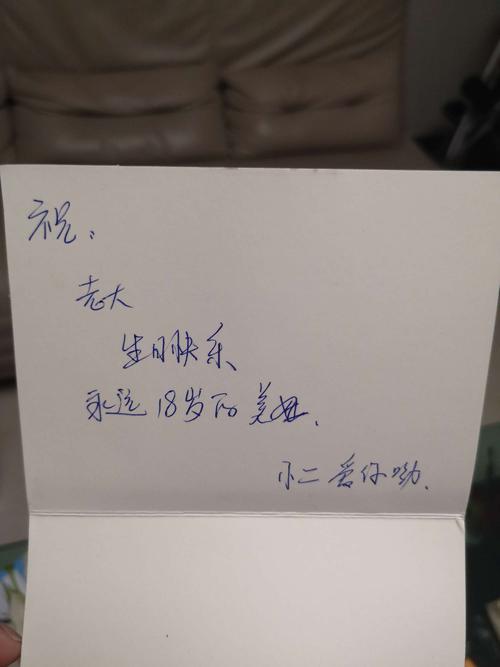 祝:
老大
生日快乐
永远18岁的美女.
小二爱你呦.